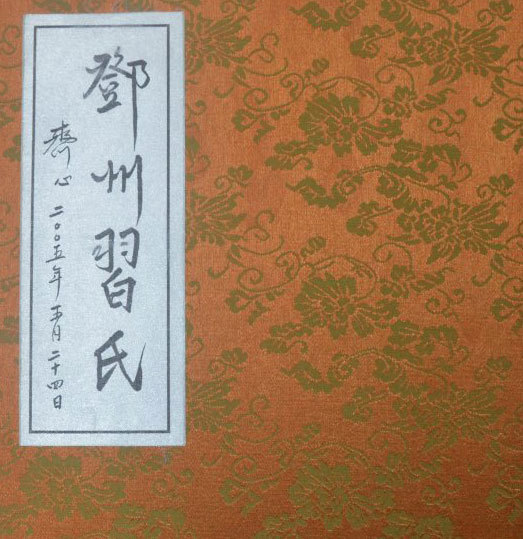 鄧州習氏
齊心 二〇〇五年五月二十四日